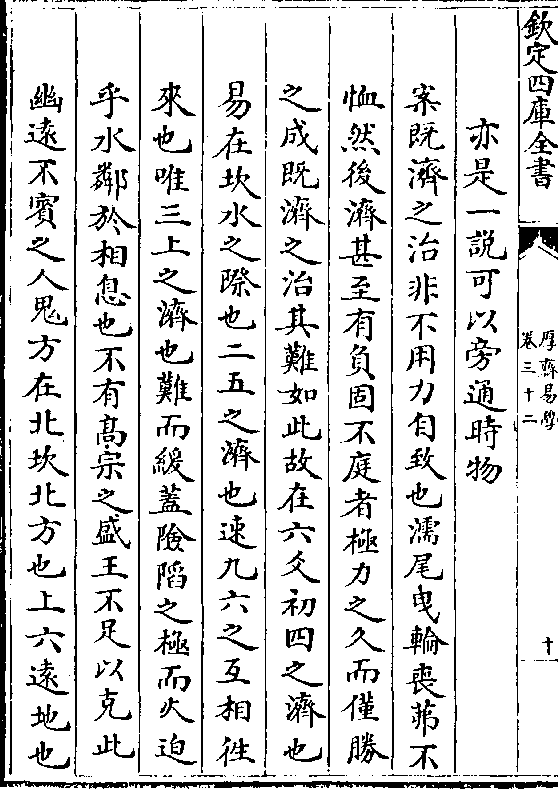 欽定四庫全書
厚齋易學
卷三十二
十
亦是一説可以旁通時物
案既濟之治非不用力自致也濡尾曳輪喪茀不
恤然後濟甚至有負固不庭者極力之久而僅勝
之成既濟之治其難如此故在六爻初四之濟也
易在坎水之際也二五之濟也速九六之互相徃
來也唯三上之濟也難而緩蓋險䧟之極而火迫
乎水鄰於相息也不有髙宗之盛王不足以克此
幽遠不賓之人鬼方在北坎北方也上六逺地也